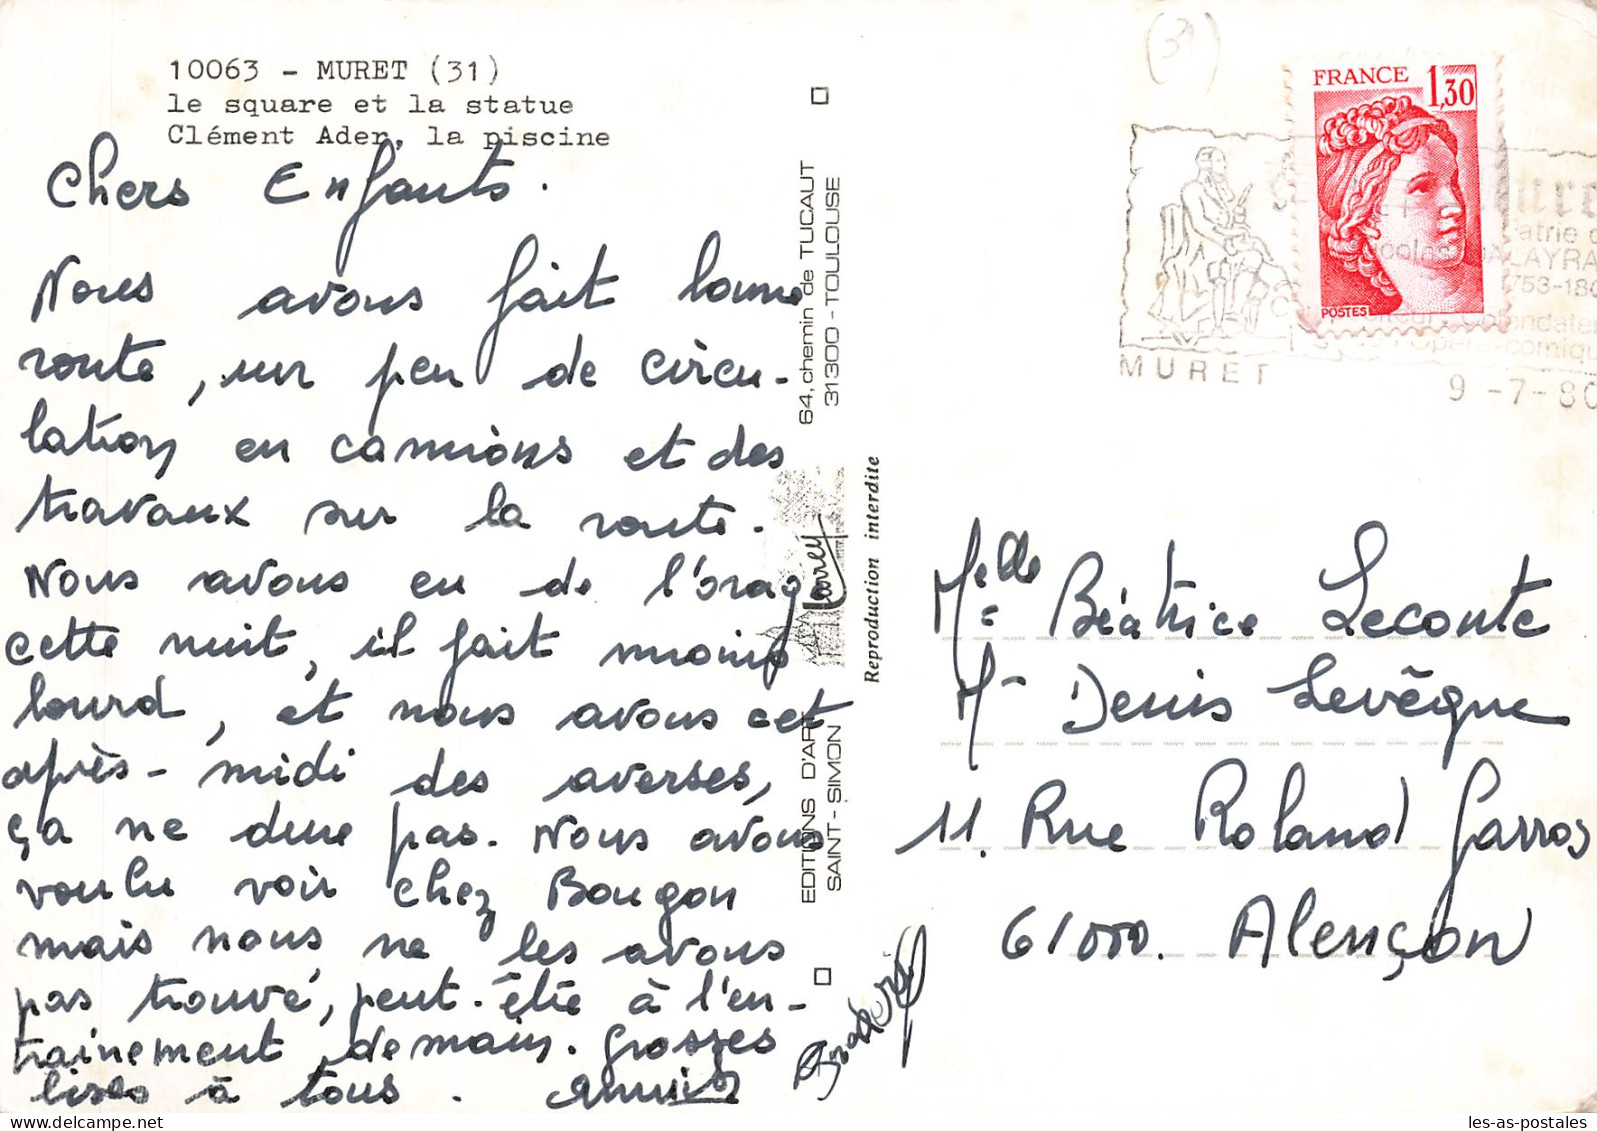 10063 - MURET (31)
le square et la statue
Clément Ader, la piscine
Chers Enfants.
Nous avons fait bonne
route, un peu de circu-
lation, en camions et des
travaux sur la route.
Nous avons eu de l'orage
cette nuit, il fait moins
lourd, et nous avons cet
après-midi des averses,
ça ne dure pas. Nous avons
voulu voir chez Bougon
mais nous ne les avons
pas trouvé, peut-être à l'en-
trainement demain. Grosses
bises à tous.
64, chemin de TUCAUT
31300 - TOULOUSE
Larrey
Reproduction interdite
EDITIONS D'ART
SAINT-SIMON
(31)
FRANCE 1,30
POSTES
MURET
9-7-80
Melle Béatrice Leconte
Mr Denis Levêque
11. Rue Roland Garros
61000. Alençon
les-as-postales